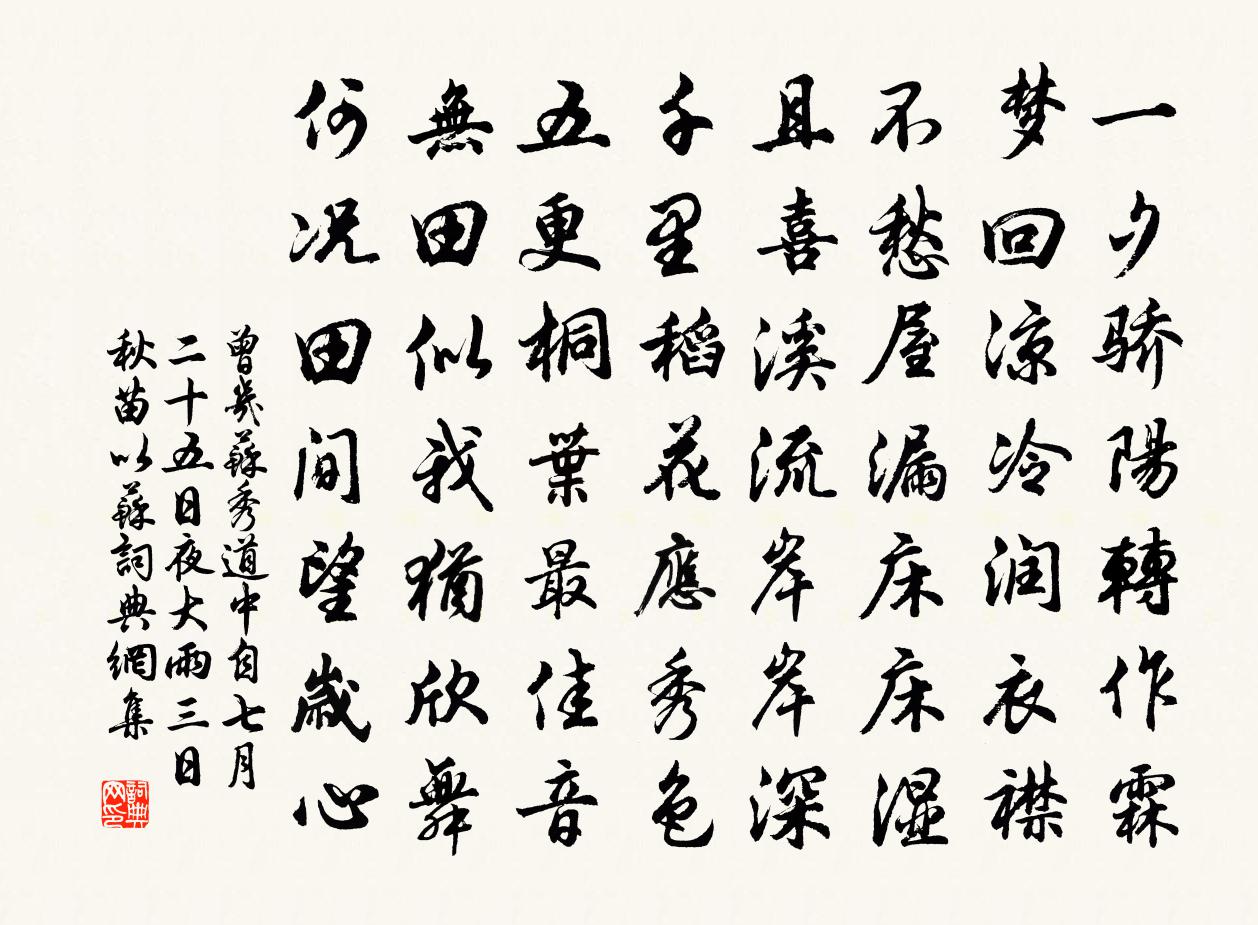 一夕骄陽轉作霖
梦回涼冷润衣襟
不愁屋漏床床湿
且喜溪流岸岸深
千里稻花應秀色
五更桐葉最佳音
無田似我猶欣舞
何况田間望歲心
曾幾蘇秀道中自七月
二十五日夜大雨三日
秋苗以蘇詞典網集
詞典
网印